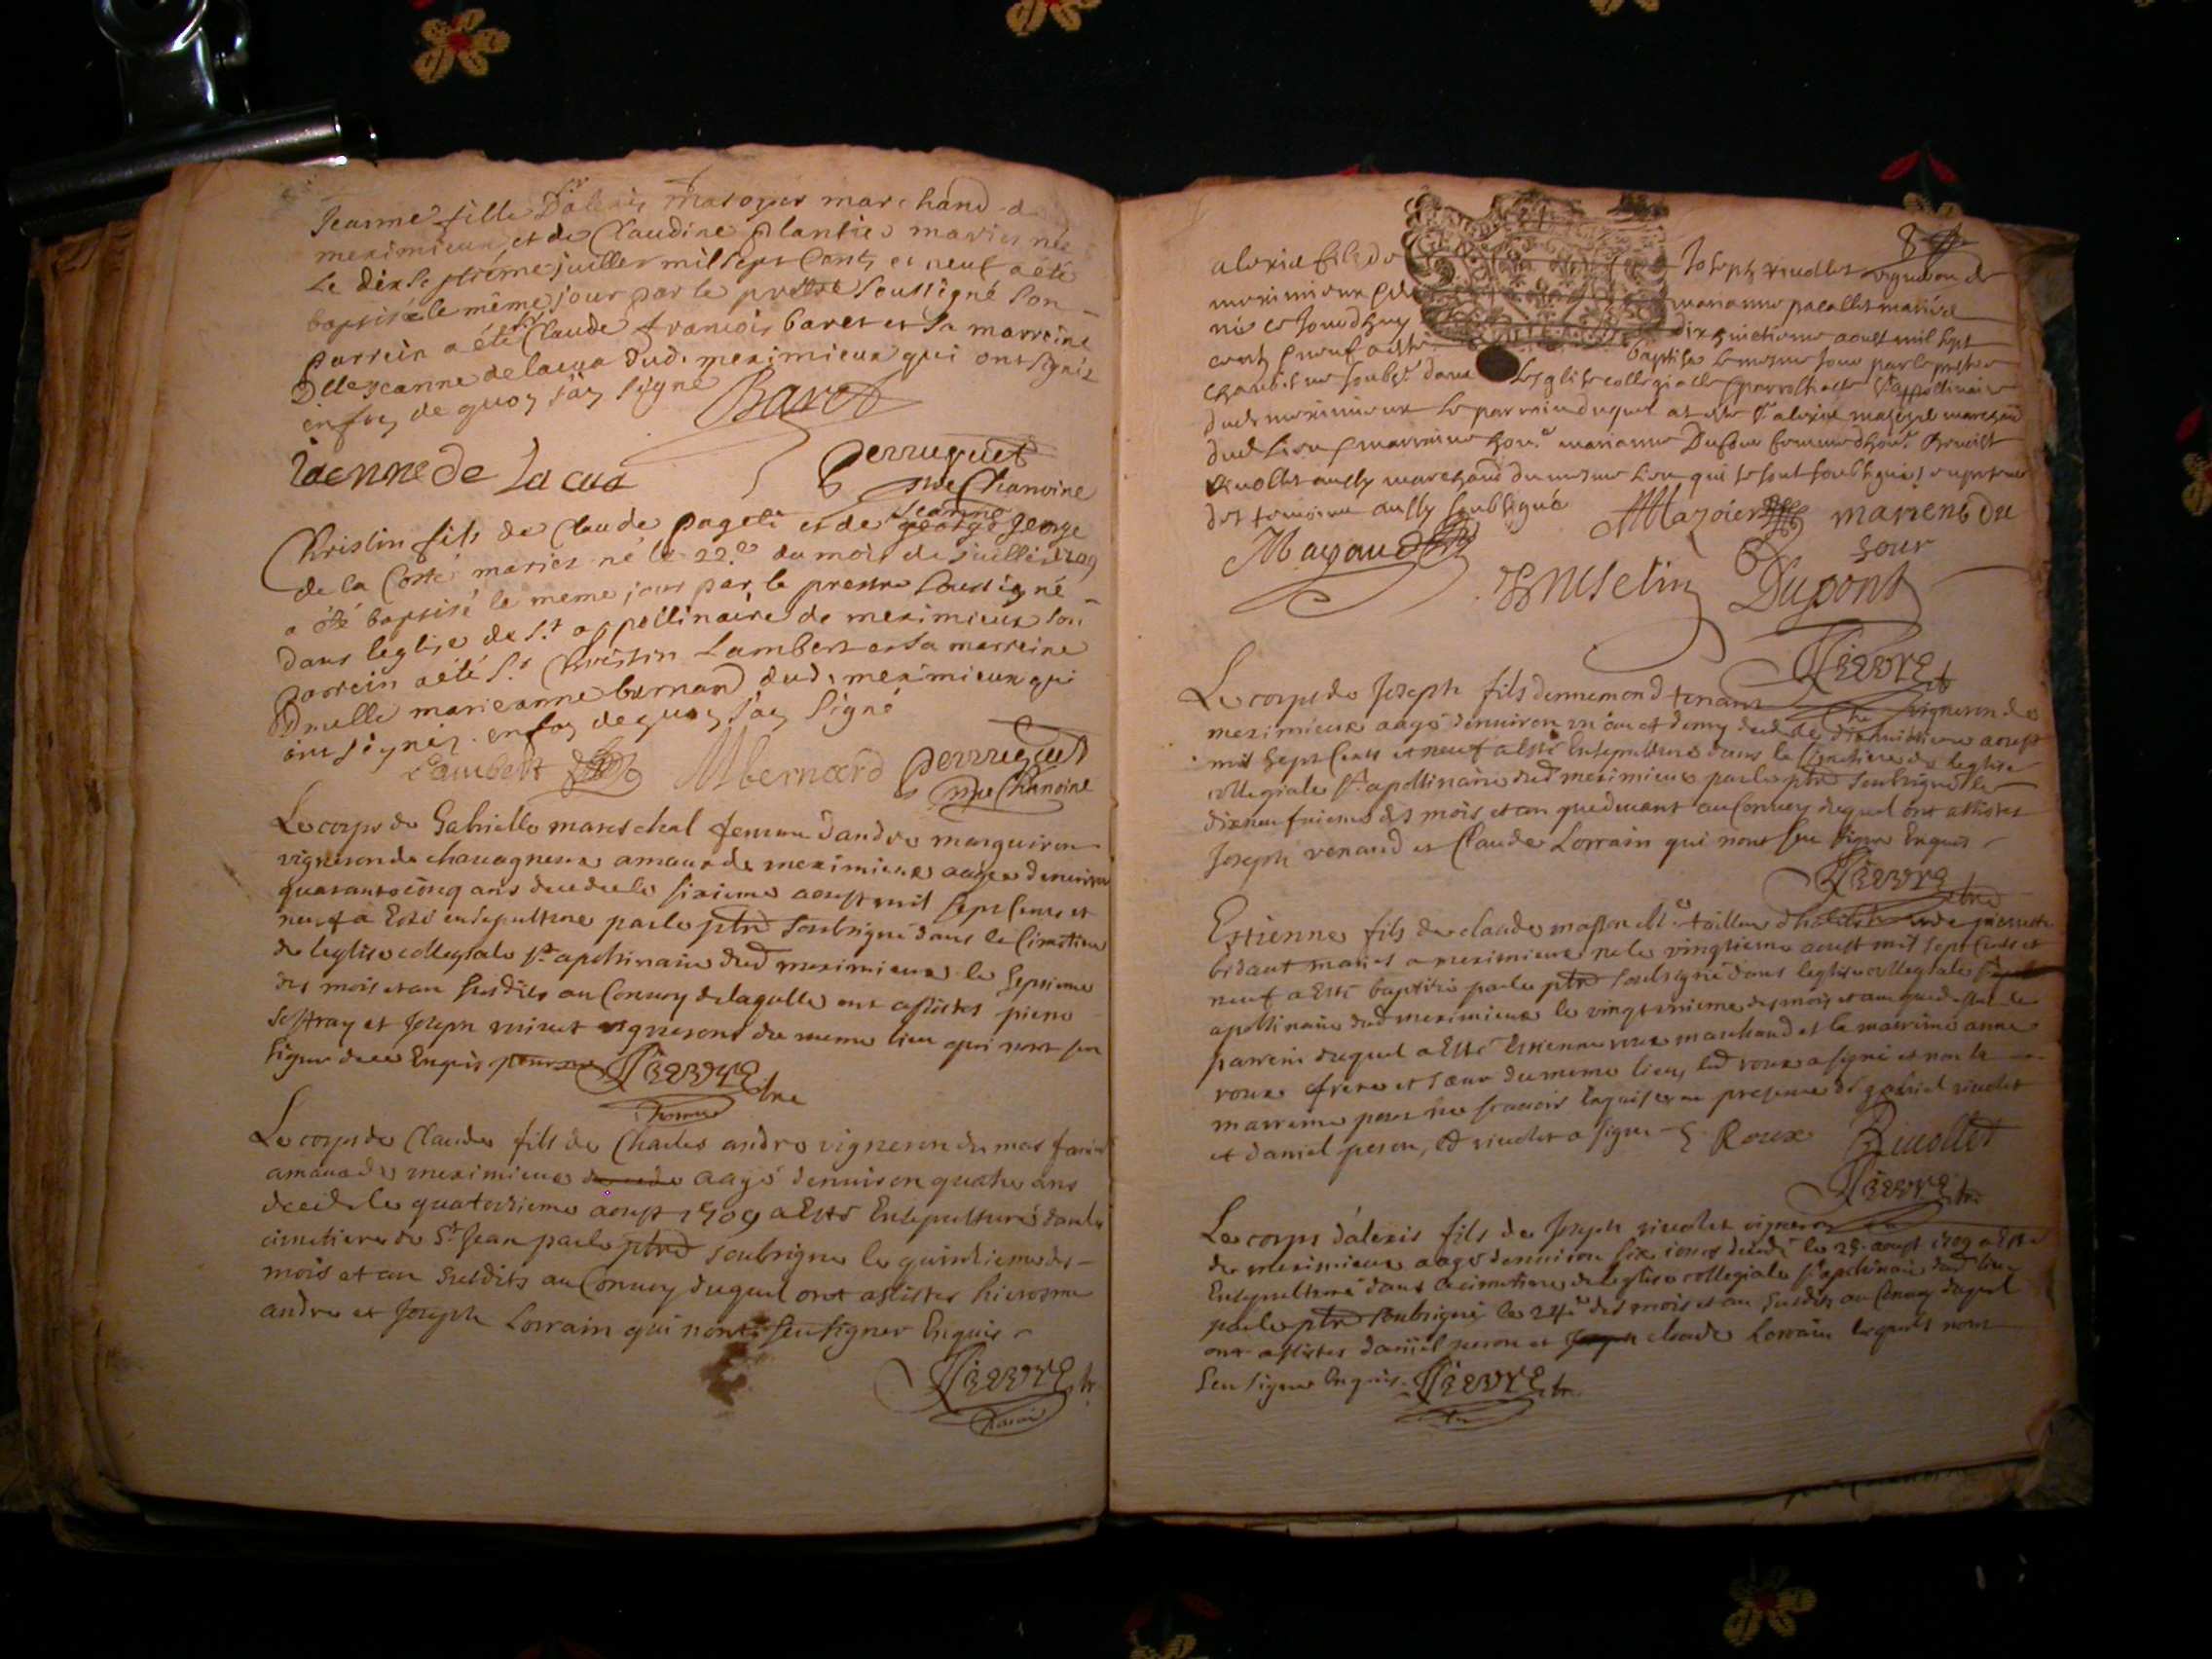 Jeanne fille d'alexis masoyer marchand de
meximieux et de Claudine plantier mariez née
Le dix septiéme juillet mil sept Cents et neuf a été
baptisée le même jour par le prestre soussigné son
parrein a été Sr Claude francois baret et sa marreine
Dlle jeanne de lacua dud. meximieux qui ont signés
en foy de quoy j'ay signé Baret
ieanne de la cua perruquet
ptre Chanoine
Christin fils de Claude pageti et de Jeanne george
de la Coste mariez né le 22e du mois de juillet 1709
a été baptisé le meme jour par le prestre soussigné
dans leglise de St appollinaire de meximieux son
parrein a été Sr Christin Lambert et sa marreine
Dmelle marieanne bernard dud. meximieux qui
ont signéz. en foy de quoy j'ay signé
Lambert M bernard perruquet
ptre Chanoine
Le corps de Gabrielle mareschal femme dandre
vigneron de chavagneux amaux de meximieux aagée denviron
quarante cinq ans decedee le sixieme aoust mil sept Cents et
neuf a Esté ensepulturé par le ptre soubsigné dans le Cimetiere
de leglise collegiale st apolinaire dud meximieux le septieme
des mois et an susdits au Convoy de laquelle ont assistes pierre
et Joseph vignerons du meme lieu qui nont seu
signer de ce Enquis Fievre ptre
Le corps de Claude fils de Charles andre vigneron du mas
amaux de meximieux aagé denviron quatre ans
decedé le quatorzieme aoust 1709 a Esté Ensepulturé dans le
cimetiere de St Jean par le ptre soubsigne le quinzieme des
mois et an susdits au Convoy duquel ont assistes hierosme
andre et Joseph Lorrain qui nont seu signer Enquis
Fievre ptre
8
alexis fils de Joseph vivollet vigneron de
meximieux et de marianne pacallet mariés
né ce jourdhuy dix huictieme aoust mil sept
cents et neuf a esté baptisé le mesme jour par le prestre
chanoine soubsé dans Lesglise collegialle et parrochialle St appollinaire
dud meximieux Le parrain duquel at esté Sr alexis masoyer marchand
dud Lieu et marraine hone marianne Dufour femme dhone Benoist
vivollet aussy marchand du mesme Lieu qui se sont soubsignés en presence
des tesmoins aussy soubsigné Mazoier mariene du
four
Mayaud Dupont
Fievre ptre
Le corps de Joseph fils dennemond venant vigneron de
meximieux aagé denviron un an et demy decedé le dixhuitieme aoust
mil sept Cents et neuf a Esté Ensepulturé dans le Cimetiere de leglise
collegiale St apollinaire dud meximieux par le ptre soubsigné le
dixneufvieme des mois et an que devant au Convoy duquel ont assistes
Joseph venand et Claude Lorrain qui nont seu signer Enquis
Fievre ptre
Estienne fils de claude masson Me tailleur dhabits et de pierrette
bidaut mariés a meximieux né le vingtieme aoust mil sept Cents et
neuf a Esté baptisé par le ptre soubsigné dans leglise collegiale St
apollinaire dud meximieux le vingt unieme des mois et an que dessus le
parrein duquel a Esté Estienne roux marchand et la marreine anne
roux frere et sœur du meme lieu, led roux a signé et non la
marreine pour ne scavoir Enquise en presence de gabriel vivolet
et daniel peson, led vivolet a signe E Roux Vivollet
Fievre ptre
Le corps d'alexis fils de Joseph vivolet vigneron
de meximieux aagé denviron six jours decedé le 23 aoust 1709 a Esté
Ensepulturé dans le cimetiere de leglise collegiale St apolinaire dud lieu
par le ptre soubsigné le 24e des mois et an susdits au Convoy duquel
ont assistes daniel peson et claude Lorrain lesquels nont
seu signer Enquis. Fievre ptre